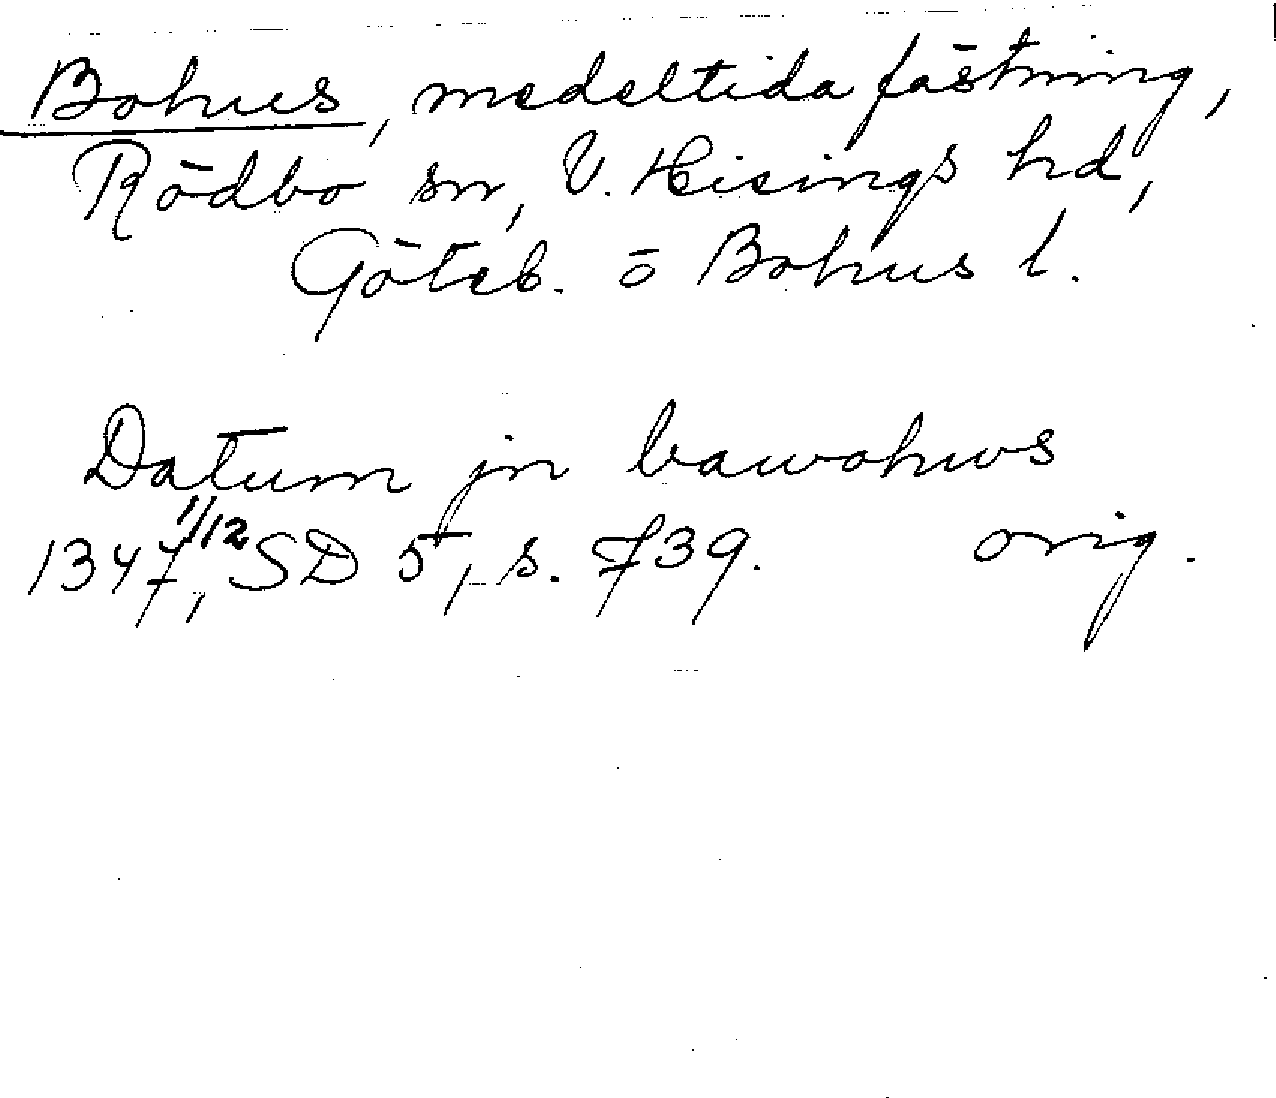 Bohus, medeltida fästning,
Rödbo sn, V. Hisings hd,
Göteb. o Bohus l.
Datum jn bawohws
1347 1/12, SD 5, s. 739. orig.